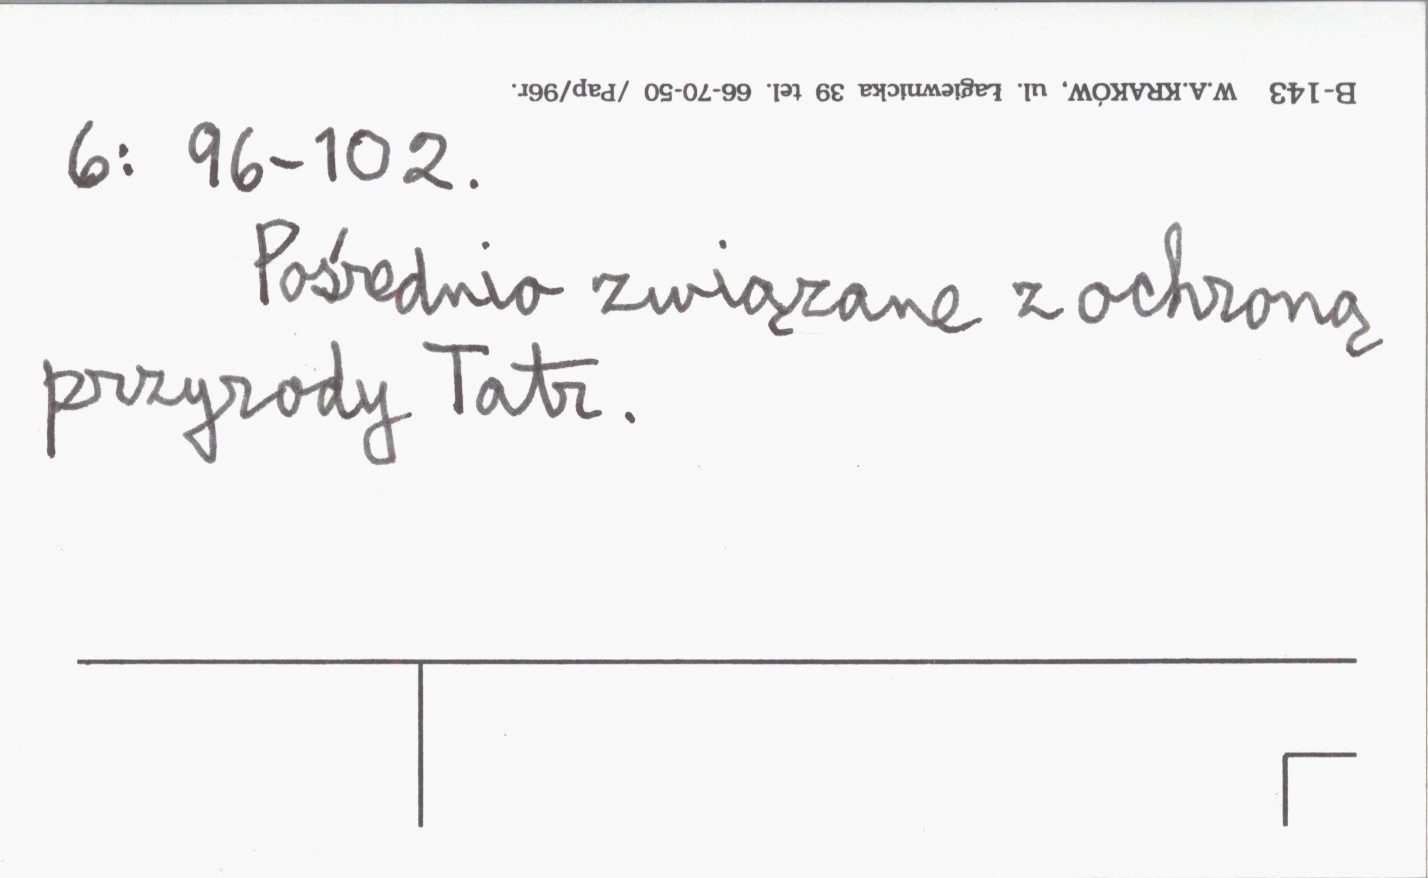 B-143 W.A.KRAKÓW, ul. Łagiewnicka 39 tel. 66-70-50 /Pap/96r.
6: 96-102.
Pośrednio związane z ochroną
przyrody Tatr.